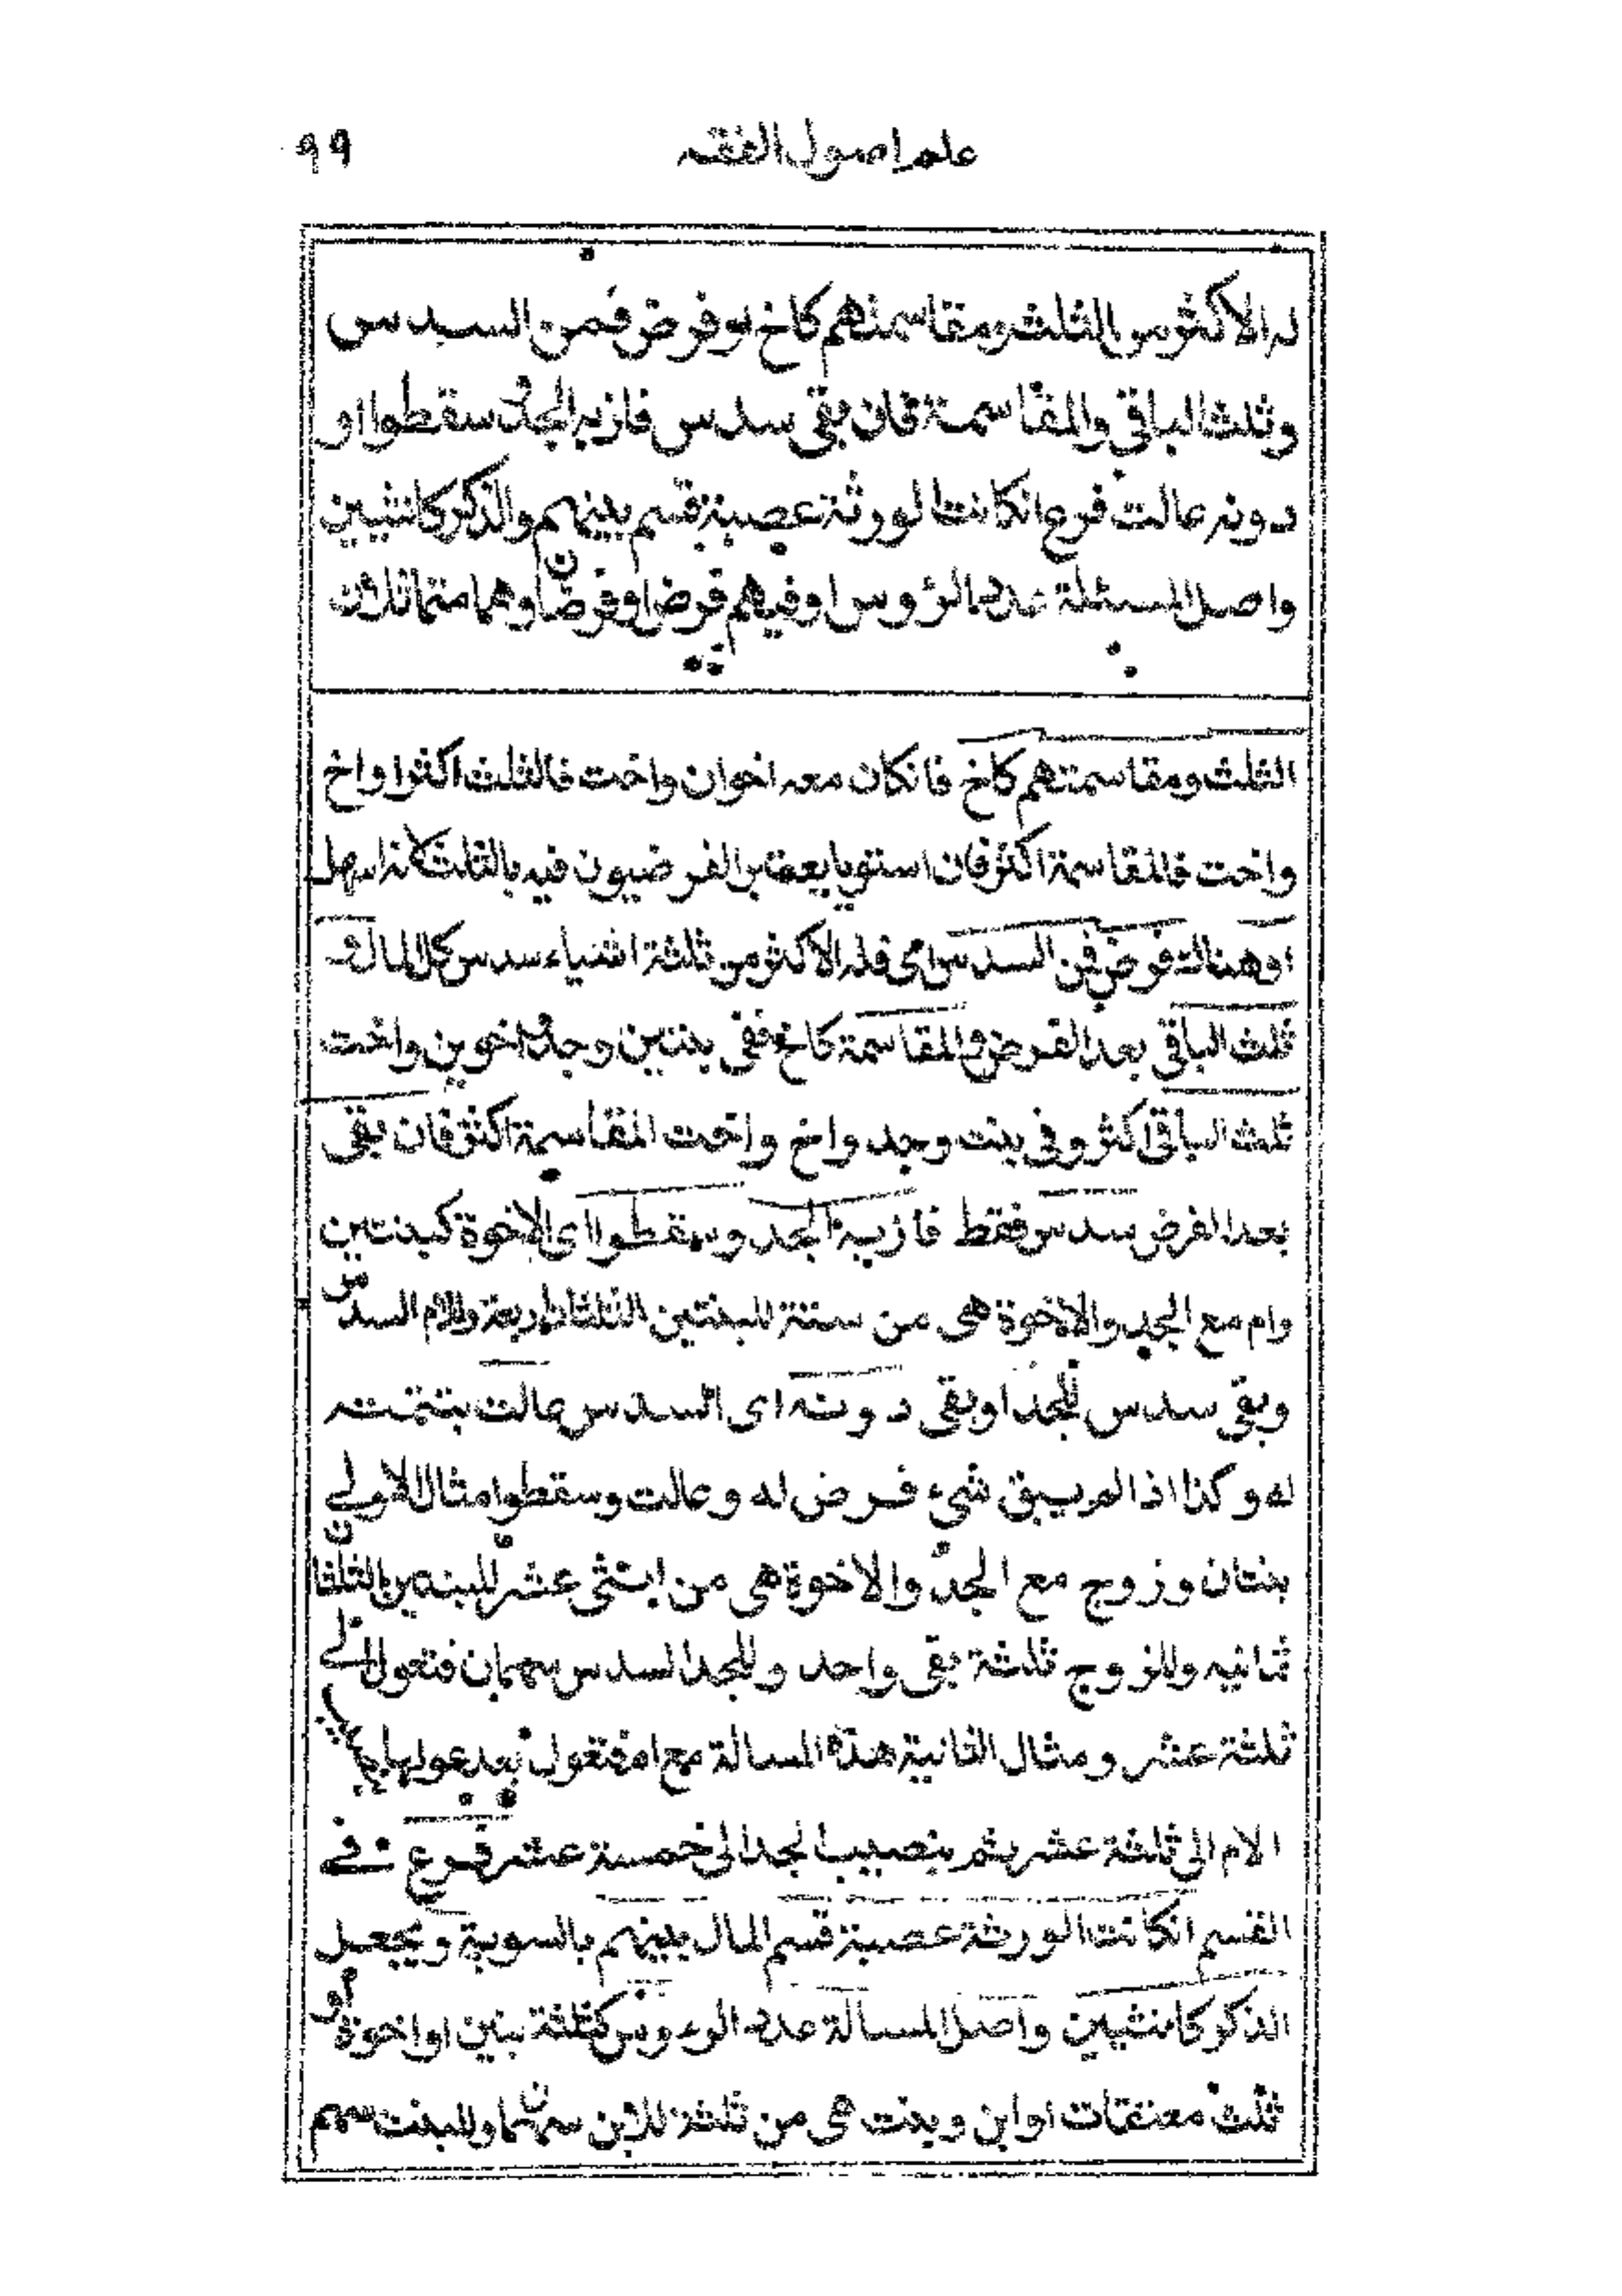 علم اصول الفقه
۹۹
له الاكثر من الثلث ومقاسمتهم كاخ او فرض فمن السدس
وثلث الباقي والمقاسمة فان بقى سدس فاز به الجد وسقطوا او
دونه عالت فرع انكانت الورثة عصبة قسم بينهم والذكر كانثيين
واصل المسئلة عدد الرؤوس او فيهم فرض او فرضان وهما متماثلان
الثلث ومقاسمتهم كاخ فانكان معه اخوان واخت فالثلث اكثر او اخ
واخت فالمقاسمة اكثر فان استويا يعبر الفرضيون فيه بالثلث لانه اسهل
او هناك فرض فمن السدس اى فله الاكثر من ثلثة اشياء سدس كل المال و
ثلث الباقى بعد الفرض والمقاسمة كاخ ففى بنتين وجد واخوين واخت
ثلث الباقى اكثر وفى بنت وجد واخ واخت المقاسمة اكثر فان بقى
بعد الفرض سدس فقط فاز به الجد وسقطوا اى الاخوة كبنتين
وام مع الجد والاخوة هى من ستة للبنتين الثلثان اربعة وللام السدس
وبقى سدس للجد او بقى دونه اى السدس عالت بتتمته
له وكذا اذا لم يبق شىء فرض له وعالت وسقطوا مثال الاولى
بنتان وزوج مع الجد والاخوة هى من اثنى عشر للبنتين الثلثان
ثمانيه وللزوج ثلثة بقى واحد وللجد السدس سهمان فتعول الى
ثلثة عشر ومثال الثانية هذه المسالة مع ام فتعول بعد عولها بنصيب
الام الى ثلثة عشر ثم بنصيب الجد الى خمسة عشر فرع فى
القسم انكانت الورثة عصبة قسم المال بينهم بالسوية ويجعل
الذكر كانثيين واصل المسالة عدد الرءوس كثلثة بنين او اخوة او
ثلث معتقات او ابن وبنت هى من ثلثة للابن سهمان وللبنت سهم